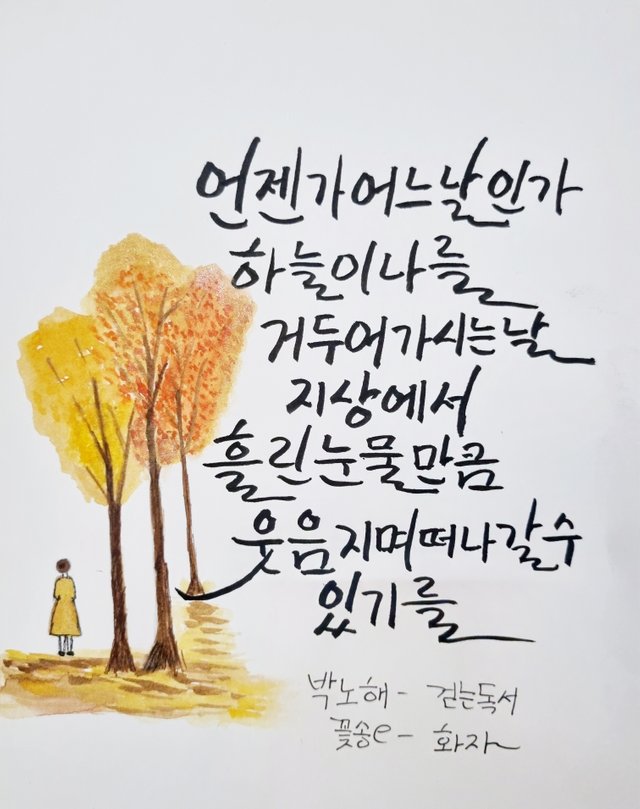 언젠가 어느날인가
하늘이 나를
거두어 가시는 날
지상에서
흘린 눈물만큼
웃음지며 떠나갈 수
있기를
박노해 - 걷는독서
꽃송e - 화자